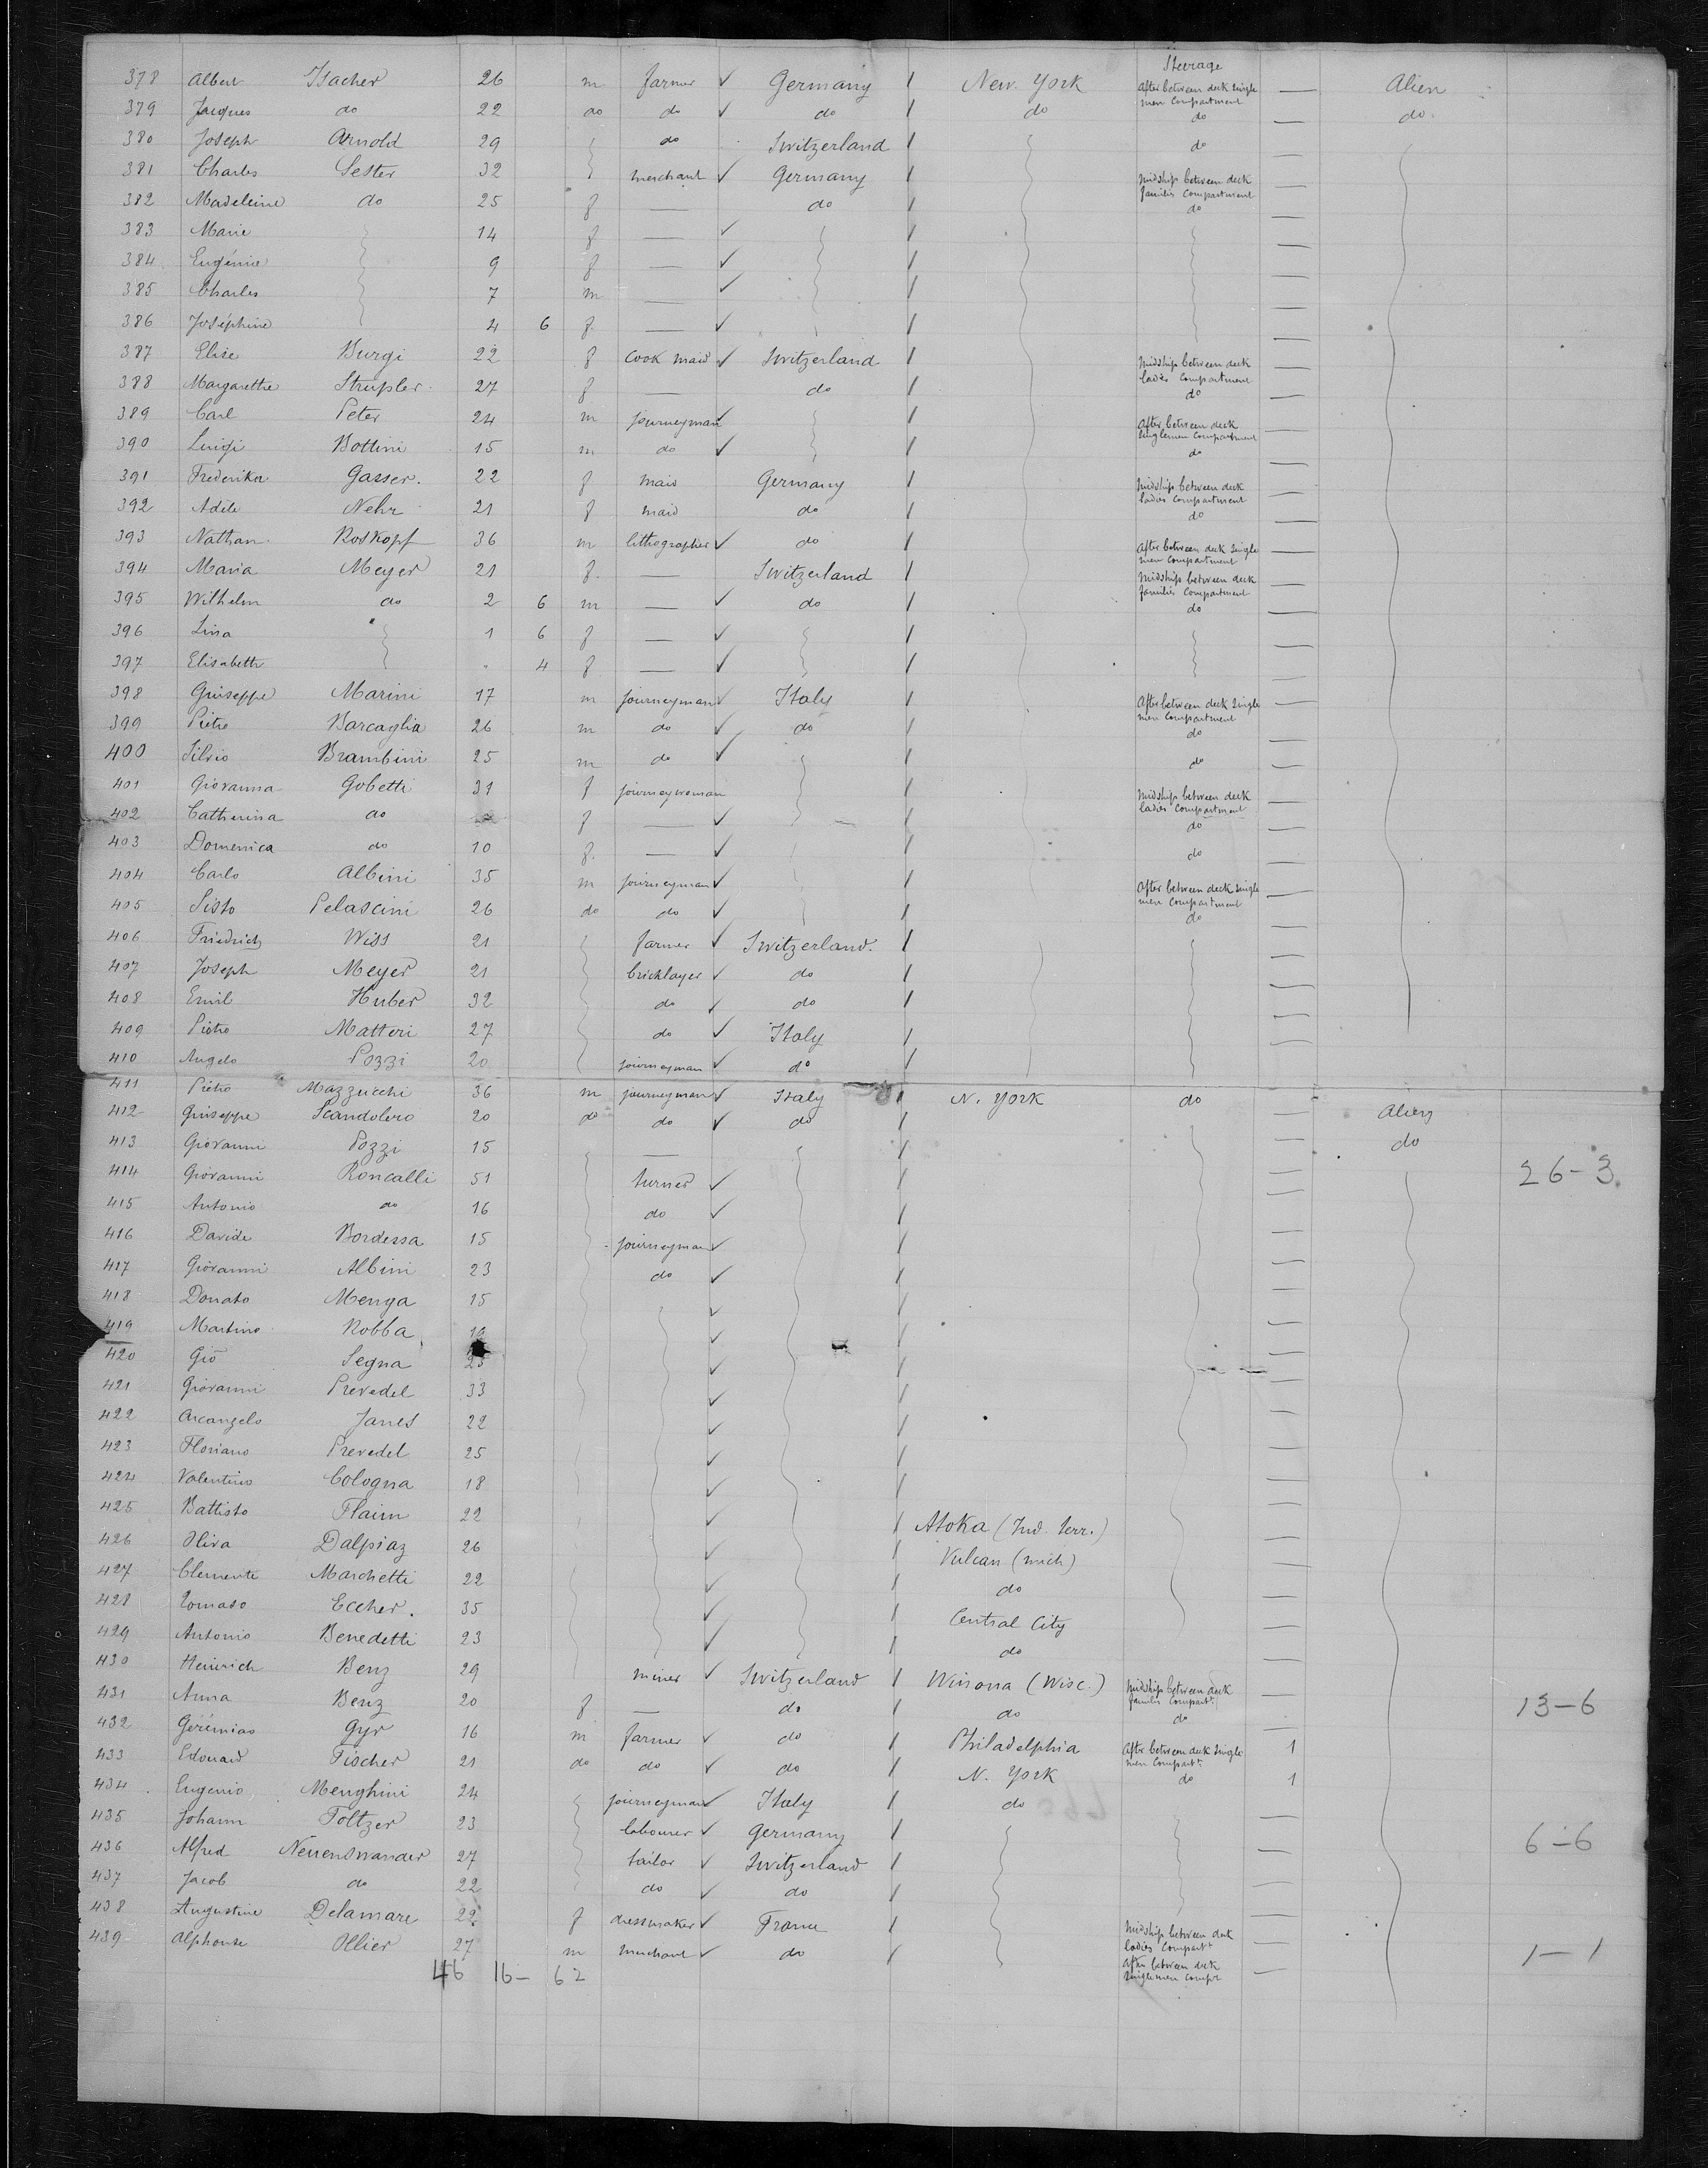 Steerage
378 Albert Isacher 26 m farmer ✓ Germany / New. York After between deck single men Compartment — Alien
379 Jacques do 22 do do ✓ do / do do — do.
380 Joseph Arnold 29 do Switzerland / do —
381 Charles Sester 32 merchant ✓ Germany / Midship between deck families Compartment —
382 Madeleine do 25 f — do / do —
383 Marie 14 f — ✓ / —
384 Eugénie 9 f — ✓ / —
385 Charles 7 m — ✓ / —
386 Joséphine 4 6 f. — ✓ / —
387 Elise Burgi 22 f Cook maid ✓ Switzerland / Midship between deck ladies Compartment —
388 Margarethe Strupler. 27 f — do / do —
389 Carl Peter 24 m journeyman ✓ / After between deck Singlemen Compartment —
390 Luigi Bottini 15 m do ✓ / do —
391 Frederika Gasser. 22 f maid Germany / Midship between deck ladies Compartment —
392 Adèle Nehr 21 f maid do / do —
393 Nathan Roskopf 36 m lithographer ✓ do / After between deck Single men Compartment —
394 Maria Meyer 21 f. — Switzerland / Midship between deck families Compartment —
395 Wilhelm do 2 6 m — ✓ do / do —
396 Lina 1 6 f — ✓ / —
397 Elisabeth " 4 f — ✓ / —
398 Guiseppe Marini 17 m journeyman ✓ Italy / After between deck Single men Compartment —
399 Pietro Barcaglia 26 m do ✓ do / do —
400 Silvio Brambini 25 m do ✓ / do —
401 Giovanna Gobetti 31 f journeywoman / Midship between deck ladies Compartment —
402 Catherina do f — ✓ / do —
403 Domenica do 10 f. — ✓ / do —
404 Carlo Albini 35 m journeyman ✓ / After between deck Single men Compartment —
405 Sisto Pelascini 26 do do ✓ / do —
406 Friedrich Wiss 21 farmer ✓ Switzerland. / —
407 Joseph Meyer 21 bricklayer ✓ do / —
408 Emil Huber 32 do ✓ do / —
409 Pietro Matteri 27 do ✓ Italy / —
410 Angelo Pozzi 20 journeyman ✓ do / —
411 Pietro Mazzucchi 36 m journeyman ✓ Italy / N. York do —
412 Guiseppe Scandolero 20 do do ✓ do / — Alien
413 Giovanni Pozzi 15 — / — do
414 Giovanni Roncalli 51 turner ✓ / — 26-3.
415 Antonio do 16 do ✓ / —
416 Davide Bordessa 15 journeyman ✓ / —
417 Giovanni Albini 23 do ✓ / —
418 Donato Menga 15 ✓ / —
419 Martino Robba ✓ / —
420 Gio Segna 25 ✓ / —
421 Giovanni Prevedel 33 ✓ / —
422 Arcangelo Janes 22 ✓ / —
423 Floriano Prevedel 25 ✓ / —
424 Valentino Cologna 18 ✓ / —
425 Battisto Flaim 22 ✓ / Atoka (Ind. terr.) —
426 Oliva Dalpiaz 26 ✓ / Vulcan (mich) —
427 Clemente Marchetti 22 ✓ / do —
428 Tomaso Eccher. 35 ✓ / Central City —
429 Antonio Benedetti 23 ✓ / do —
430 Heinrich Benz 29 miner ✓ Switzerland / Winona (Wisc.) Midship between deck families Compartt. —
431 Anna Benz 20 f — do / do do — 13-6
432 Gérémias Gyr 16 m farmer ✓ do / Philadelphia After between deck Single men Compartt. 1
433 Edouard Fischer 21 do do ✓ do / N. York do 1
434 Eugenio Menghini 24 journeyman ✓ Italy / do —
435 Johann Foltzer 23 labourer ✓ Germany / — 6-6
436 Alfred Neuenswander 27 tailor ✓ Switzerland / —
437 Jacob do 22 do ✓ do / —
438 Augustine Delamare 22 f dressmaker ✓ France / Midship between deck ladies Compartt —
439 Alphonse Ollier 27 m merchant ✓ do / After between deck Singlemen Compt — 1-1
46 16- 62